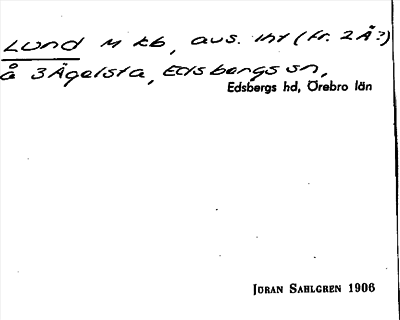 Lund M kb, avs. int (fr. 2 Ä?)
å 3 Ägelsta, Edsbergs sn,
Edsbergs hd, Örebro län
JÖRAN SAHLGREN 1906